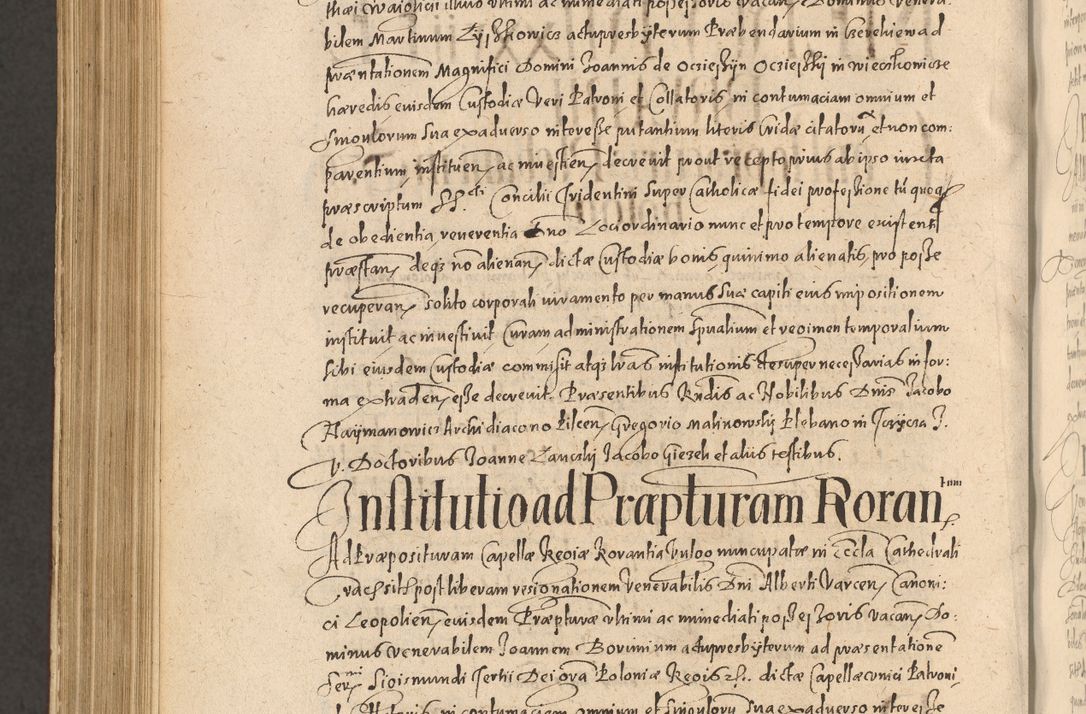 thæi Cracoliein illius ultimi ac immediati possessoris vacan. Dominus venera:
bilem Martinum Zyszkowicz actu presbyterum Præbendarium in Gerekiew ad
præntationem Magnifici Domini Joannis de Ocziesskÿn Ocziesskij in Wieczkowicze
hæredis eiusdem Custodiæ Veri Patroni et Collatoris, in contumaciam omnium et
singulorum sua ex adverso interesse putantium literis Cridæ citatorũ et non com:
parentium, instituen, ac investien, decrevit prout recepto prius ab ipso iuxta
præscriptum SS.cti Concilii Tridentini super Catholicæ fidei professione tũ quoq
de obedientia, reverentia Dno Loci ordinario nunc et pro tempore existenti
præstan, deqz nõ alienan, dictæ Custodiæ bonis, quinimo alienatis, pro posse
recuperan, solito corporali iuramento per manus suæ capiti eius impositionem
instituit ac investivit Curam administrationem spũalium et regimen temporalium
sibi eiusdem Custodiæ commisit atqz lras institutionis desuper necessarias in for:
ma extraden, esse decrevit. Præsentibus Rndis ac Nobilibus Dnis Jacobo
Naÿmanowicz Archidiacono Pilcen, Gregorio Malinowskÿ Plebano in Jczÿcza J.
V. Doctoribus Joanne Zawskÿ Jacobo Giezek et aliis testibus.
Institutio ad Præpturam Roran tium
Ad Præposituram Capellæ Regiæ Rorantia vulgo nuncupatæ in Eccla Cathedrali
Crac sitã post liberam resignationem Venerabilis Dni Alberti Varcen, Canoni:
ci Leopolien, eiusdem Præpturæ ultimi ac immediati possessoris vacan, Do:
minus venerabilem Joannem Borunium actu presbÿterum ad præsentationẽ
Ser.mi Sigismundi Tertii Dei gra Poloniæ Regis &c. dictæ Capellæ unici Patroni
in contumaciam omnium et singulorũ sua ex adverso interesse